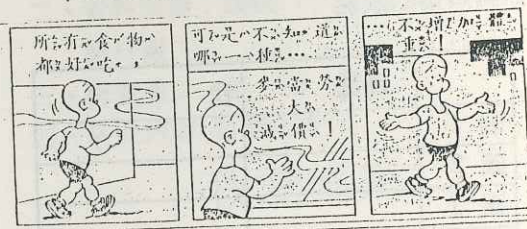 所有食物
都好吃，
可是不知道
哪一種…
麥當勞
大
減價！
…不增加體
重！